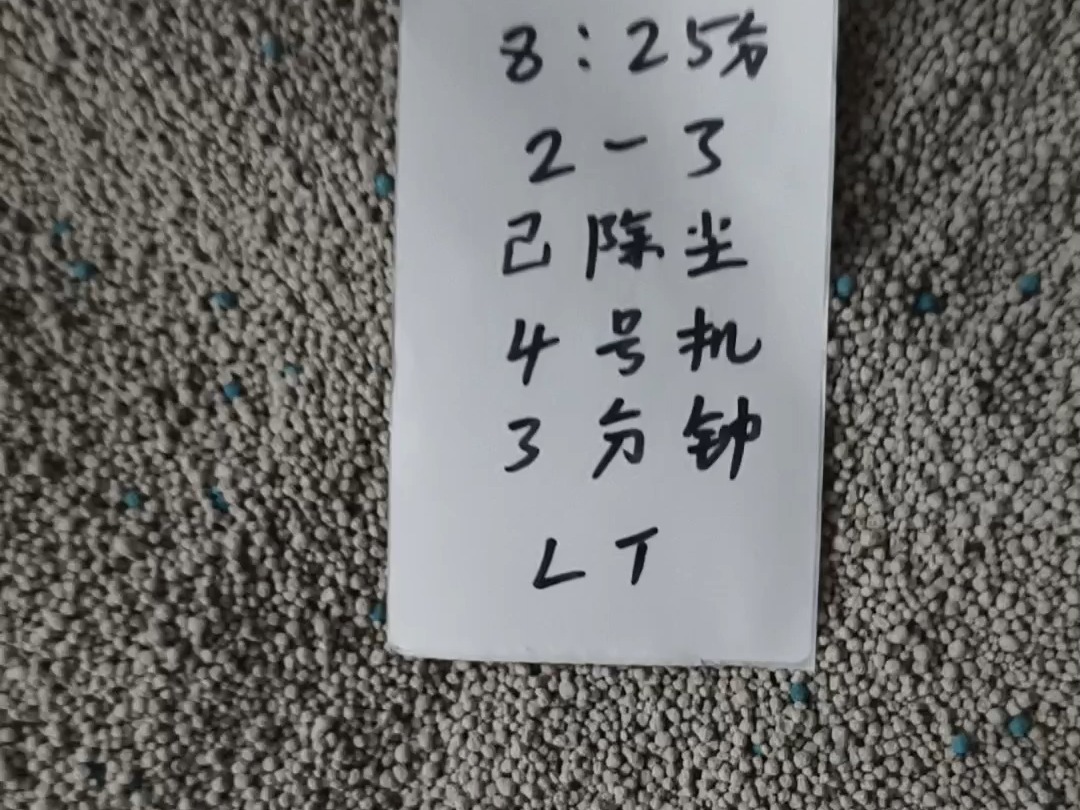 8:25分
2-3
己除尘
4号机
3分钟
LT